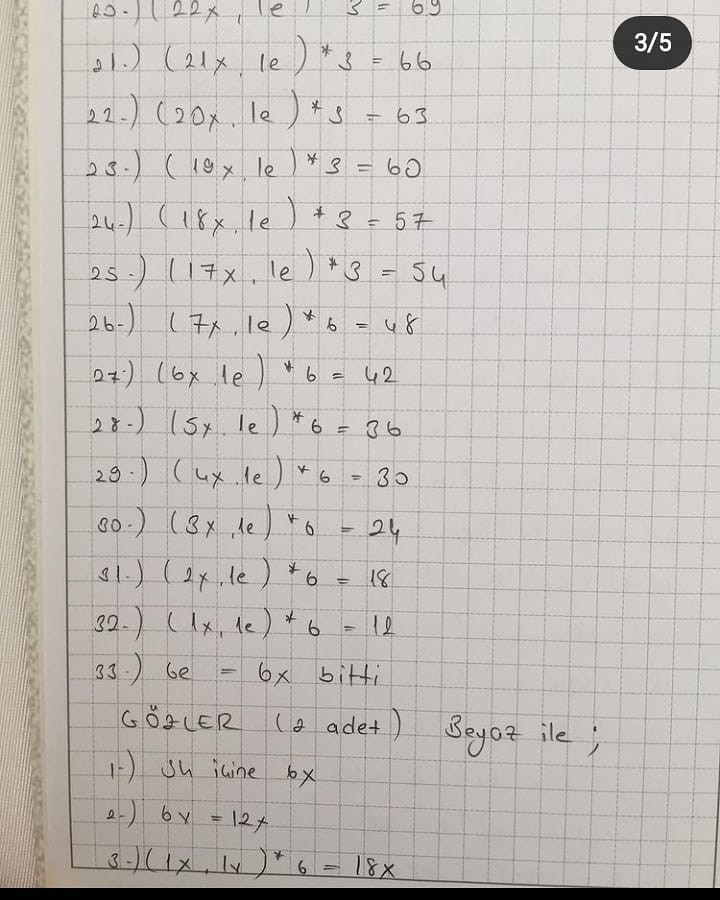 3/5
20-) (22x, 1e) 3 = 69
21.) (21x, 1e) * 3 = 66
22-) (20x, 1e) * 3 = 63
23-) (19x, 1e) * 3 = 60
24-) (18x, 1e) * 3 = 57
25-) (17x, 1e) * 3 = 54
26-) (7x, 1e) * 6 = 48
27-) (6x, 1e) * 6 = 42
28-) (5x, 1e) * 6 = 36
29-) (4x, 1e) * 6 = 30
30-) (3x, 1e) * 6 = 24
31.) (2x, 1e) * 6 = 18
32-) (1x, 1e) * 6 = 12
33-) 6e = 6x bitti
GÖZLER (2 adet) Beyaz ile ;
1-) Sh içine 6x
2-) 6v = 12x
3-) (1x, 1v) * 6 = 18x